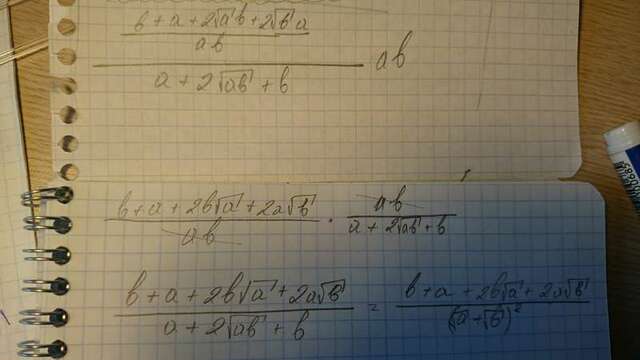 b + a + 2√a b + 2√b a
ab
ab
a + 2√ab + b
b + a + 2b√a + 2a√b
ab
·
ab
a + 2√ab + b
b + a + 2b√a + 2a√b
a + 2√ab + b
=
b + a + 2b√a + 2a√b
(√a + √b)²